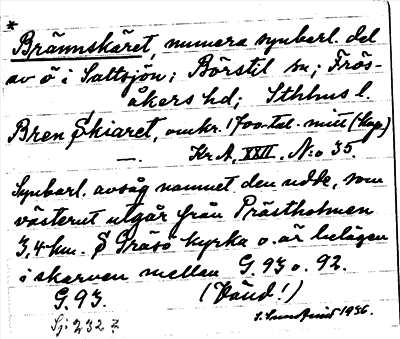 *
Brännskäret, numera synbarl. del
av ö i Saltsjön; Börstil sn; Frös-
åkers hd; Sthlms l.
Bren Skiaret, omkr. 1700-tal. mitt (Kop.)
—. Kr. A. XXII. N:o 35.
Synbarl. avsåg namnet den udde, som
västerut utgår från Prästholmen
3,4 km. S Gräsö kyrka o. är belägen
i skarven mellan G. 93 o. 92.
G. 93. (Vänd!)
Sj: 232 1936.